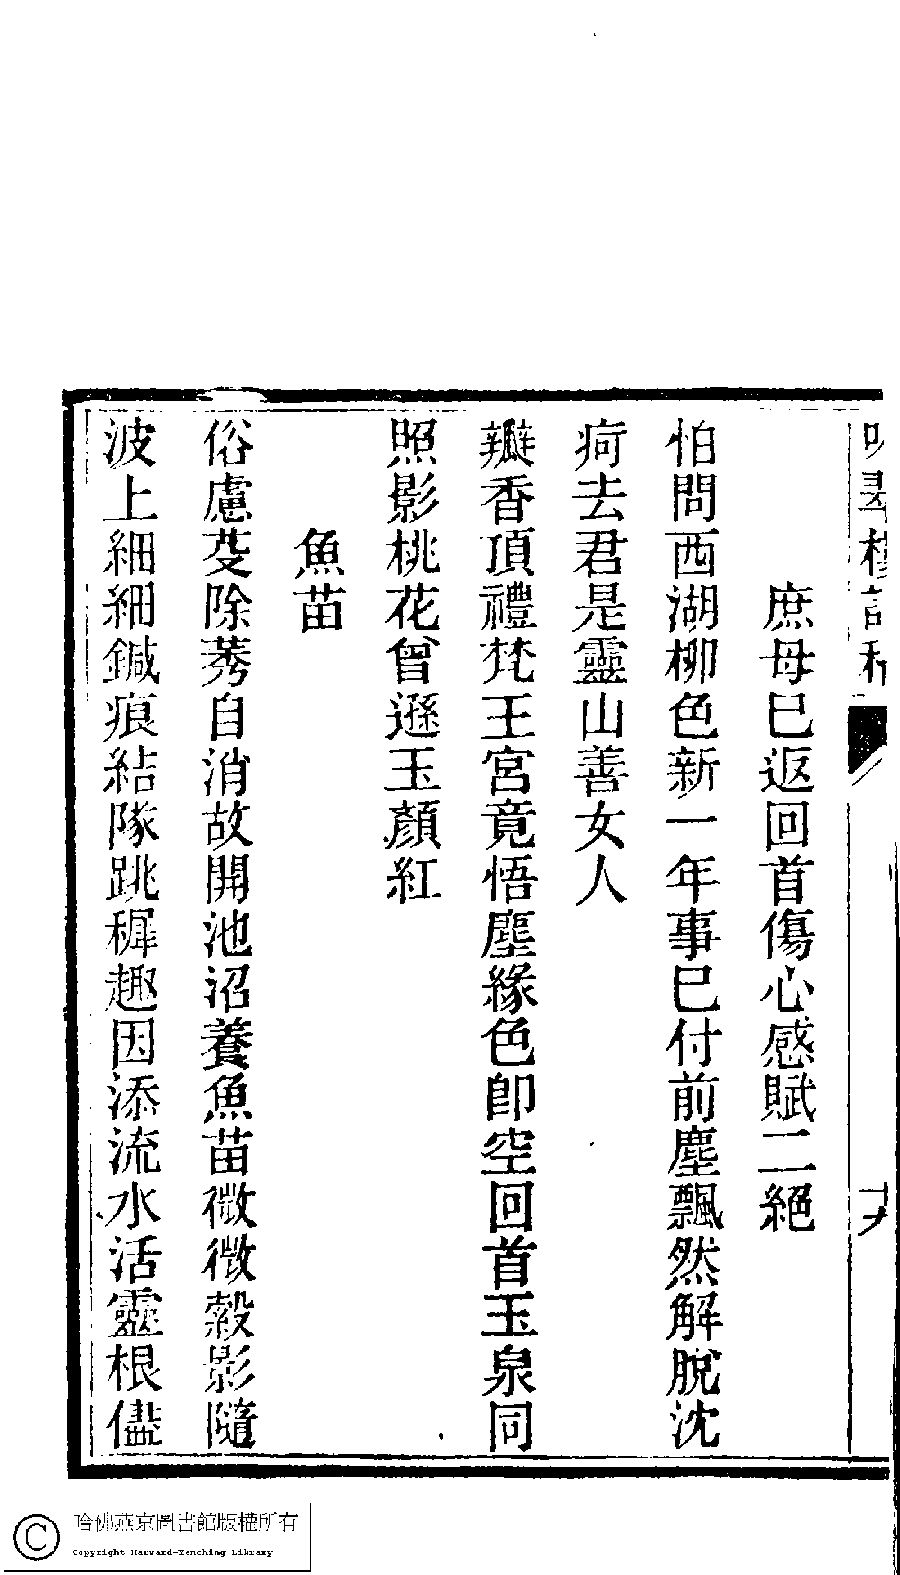 庶母已返回首傷心感賦二絕
怕問西湖柳色新一年事已付前塵飄然解脫沈
疴去君是靈山善女人
瓣香頂禮梵王宮竟悟塵緣色卽空回首玉泉同
照影桃花曾遜玉顏紅
魚苗
俗慮芟除莠自消故開池沼養魚苗微微縠影隨
波上細細鍼痕結隊跳穉趣因添流水活靈根儘
哈佛燕京圖書館版權所有
Copyright Harvard-Yenching Library